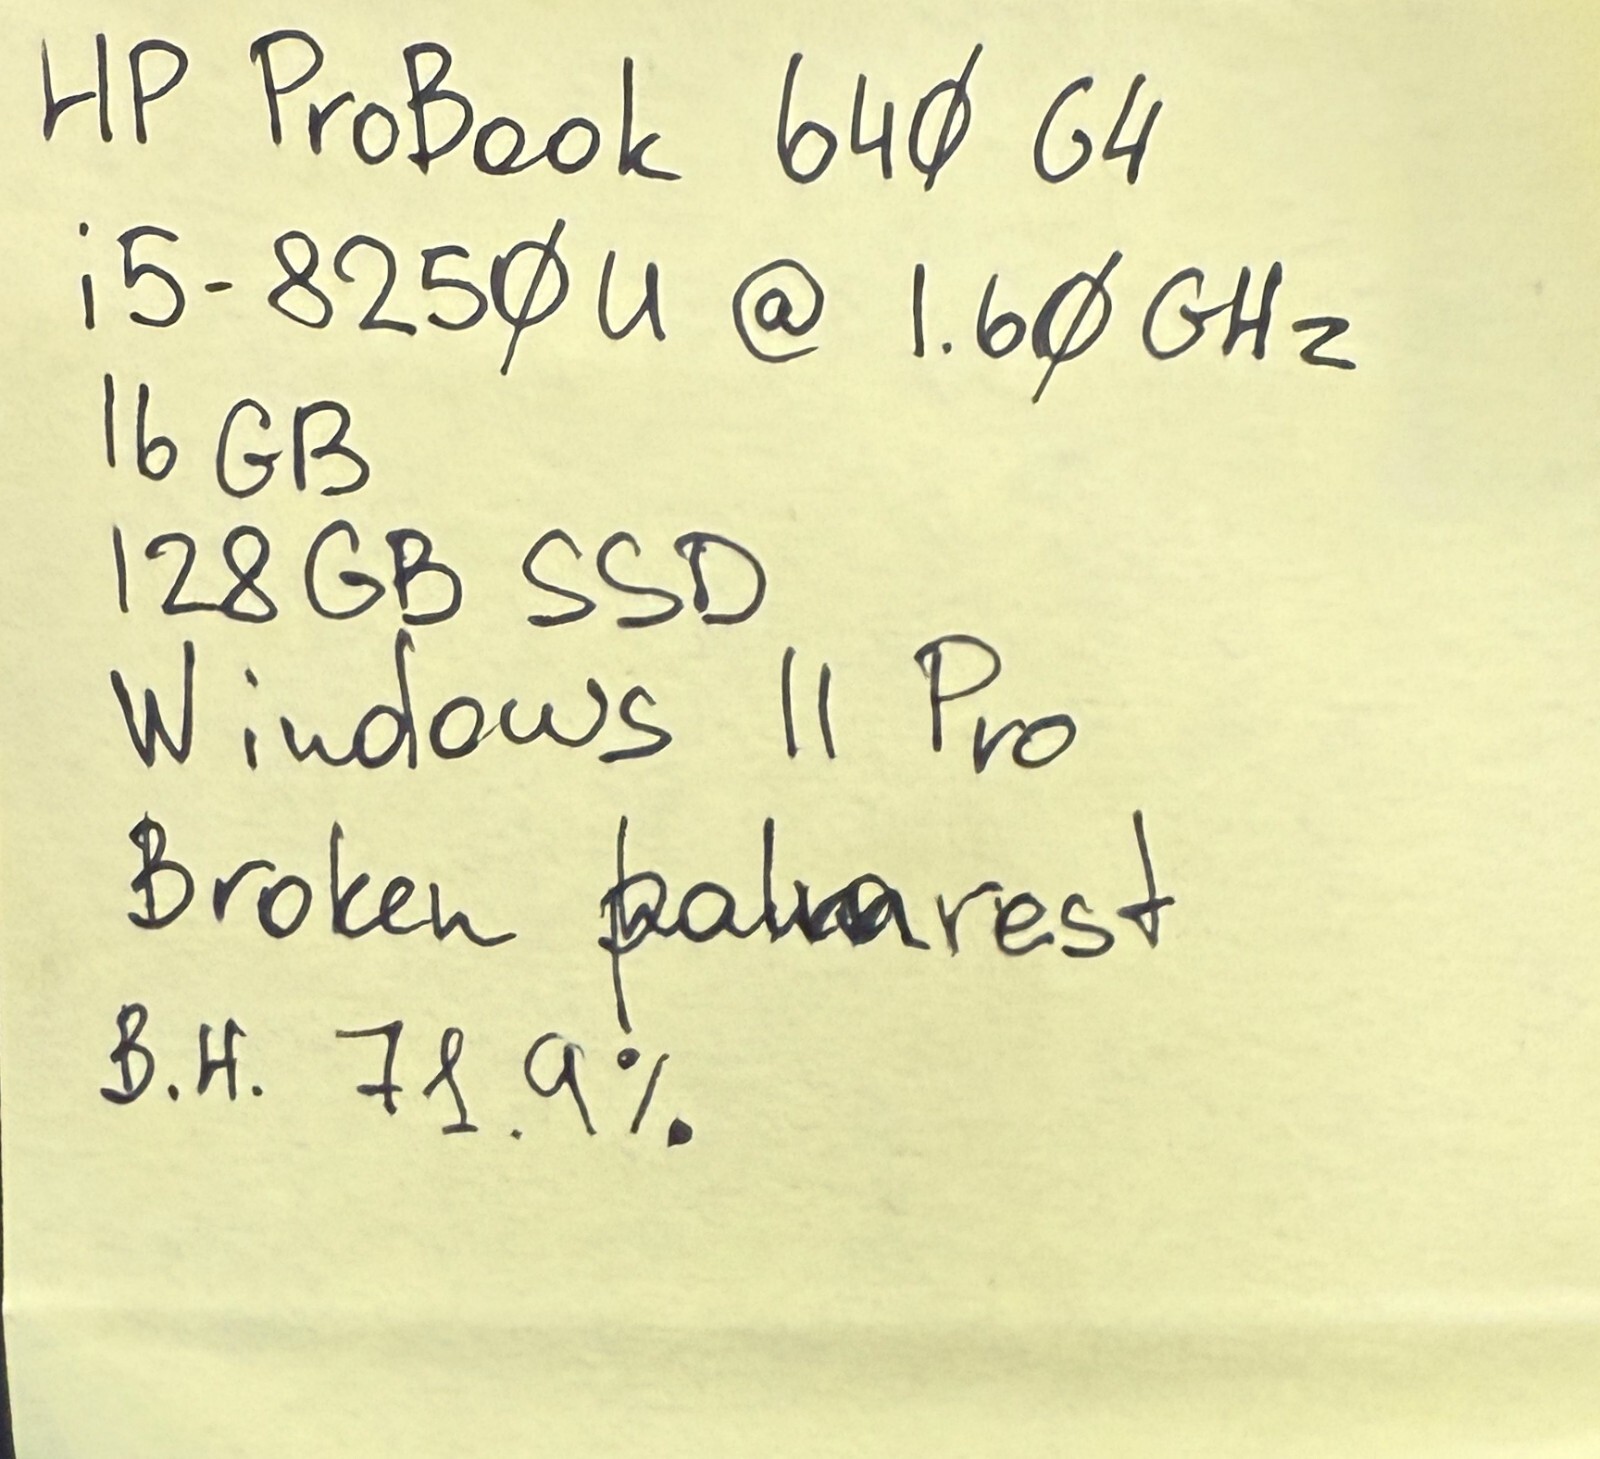 HP ProBook 640 G4
i5-8250U @ 1.60 GHz
16 GB
128 GB SSD
Windows 11 Pro
Broken palmrest
B.H. 71.9%